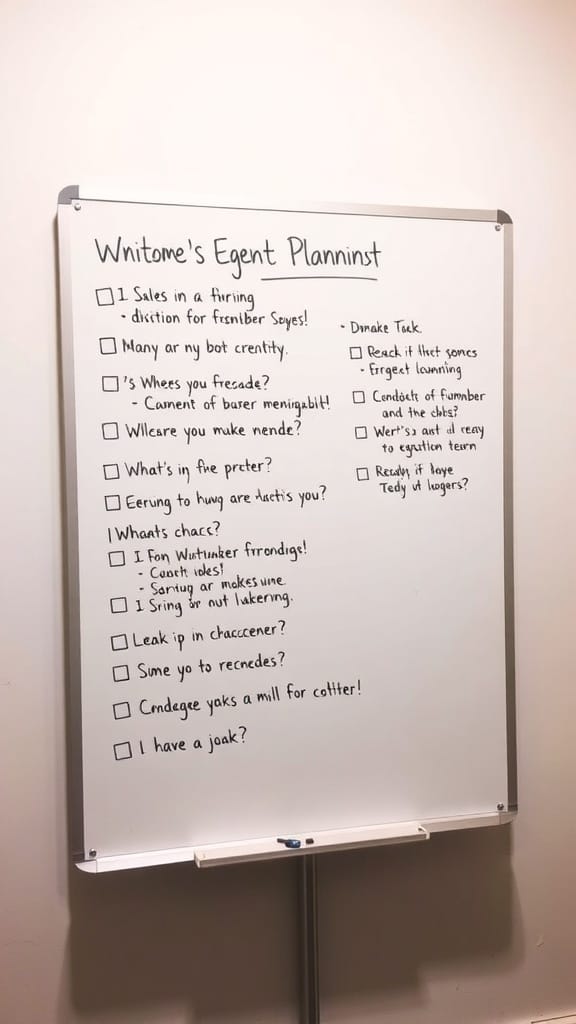 Wnitome's Egent Planninst
I Sales in a firiing
- dixtion for frsniber Sayes!
Many ar ny bot crentity.
's Whees you frecade?
- Cament of burer meningabit!
Willcare you make nende?
What's in fhe prcter?
Eerung to hung are dactis you?
I Whants chacc?
I Fon Wuntunker frrondige!
- Caeck ioles!
- Sariug ar makes une.
I Sring or nut lakering.
Leak ip in chacccener?
Sime yo to recnedes?
Cmdegee yaks a mill for cotiter!
I have a joak?
- Dmake Task.
Reack if
- Frrgect lcunning
Condects of Fumnber
and the chbs?
Wert's2 ant il reay
to egration tesrn
if loye
Tedy ut logers?